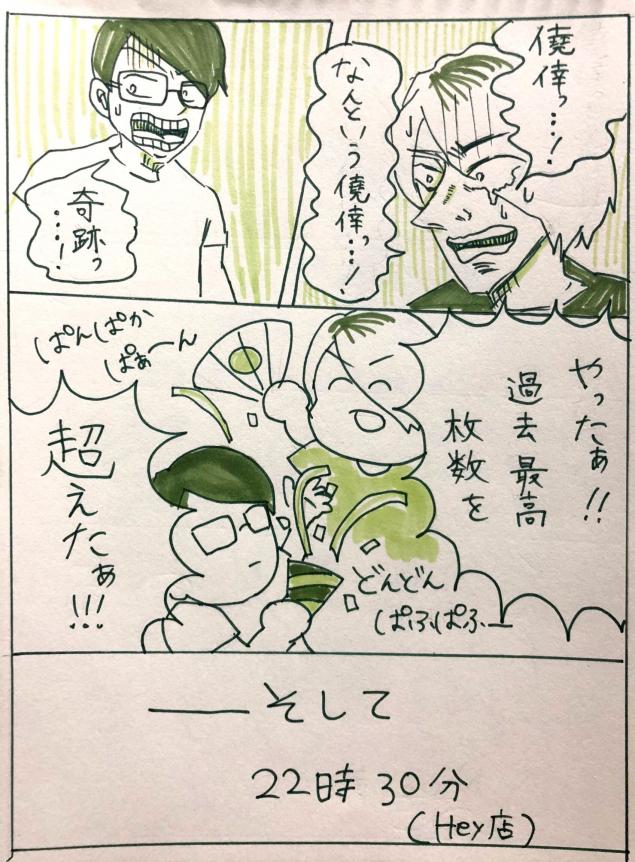 僥倖っ…!
なんという僥倖っ…!
奇跡っ…!
やったぁ!!
過去最高
枚数を
超えたぁ!!!
ぱんぱか
ぱぁーん
どんどん
ぱふぱふー
――そして
22時30分
(Hey店)